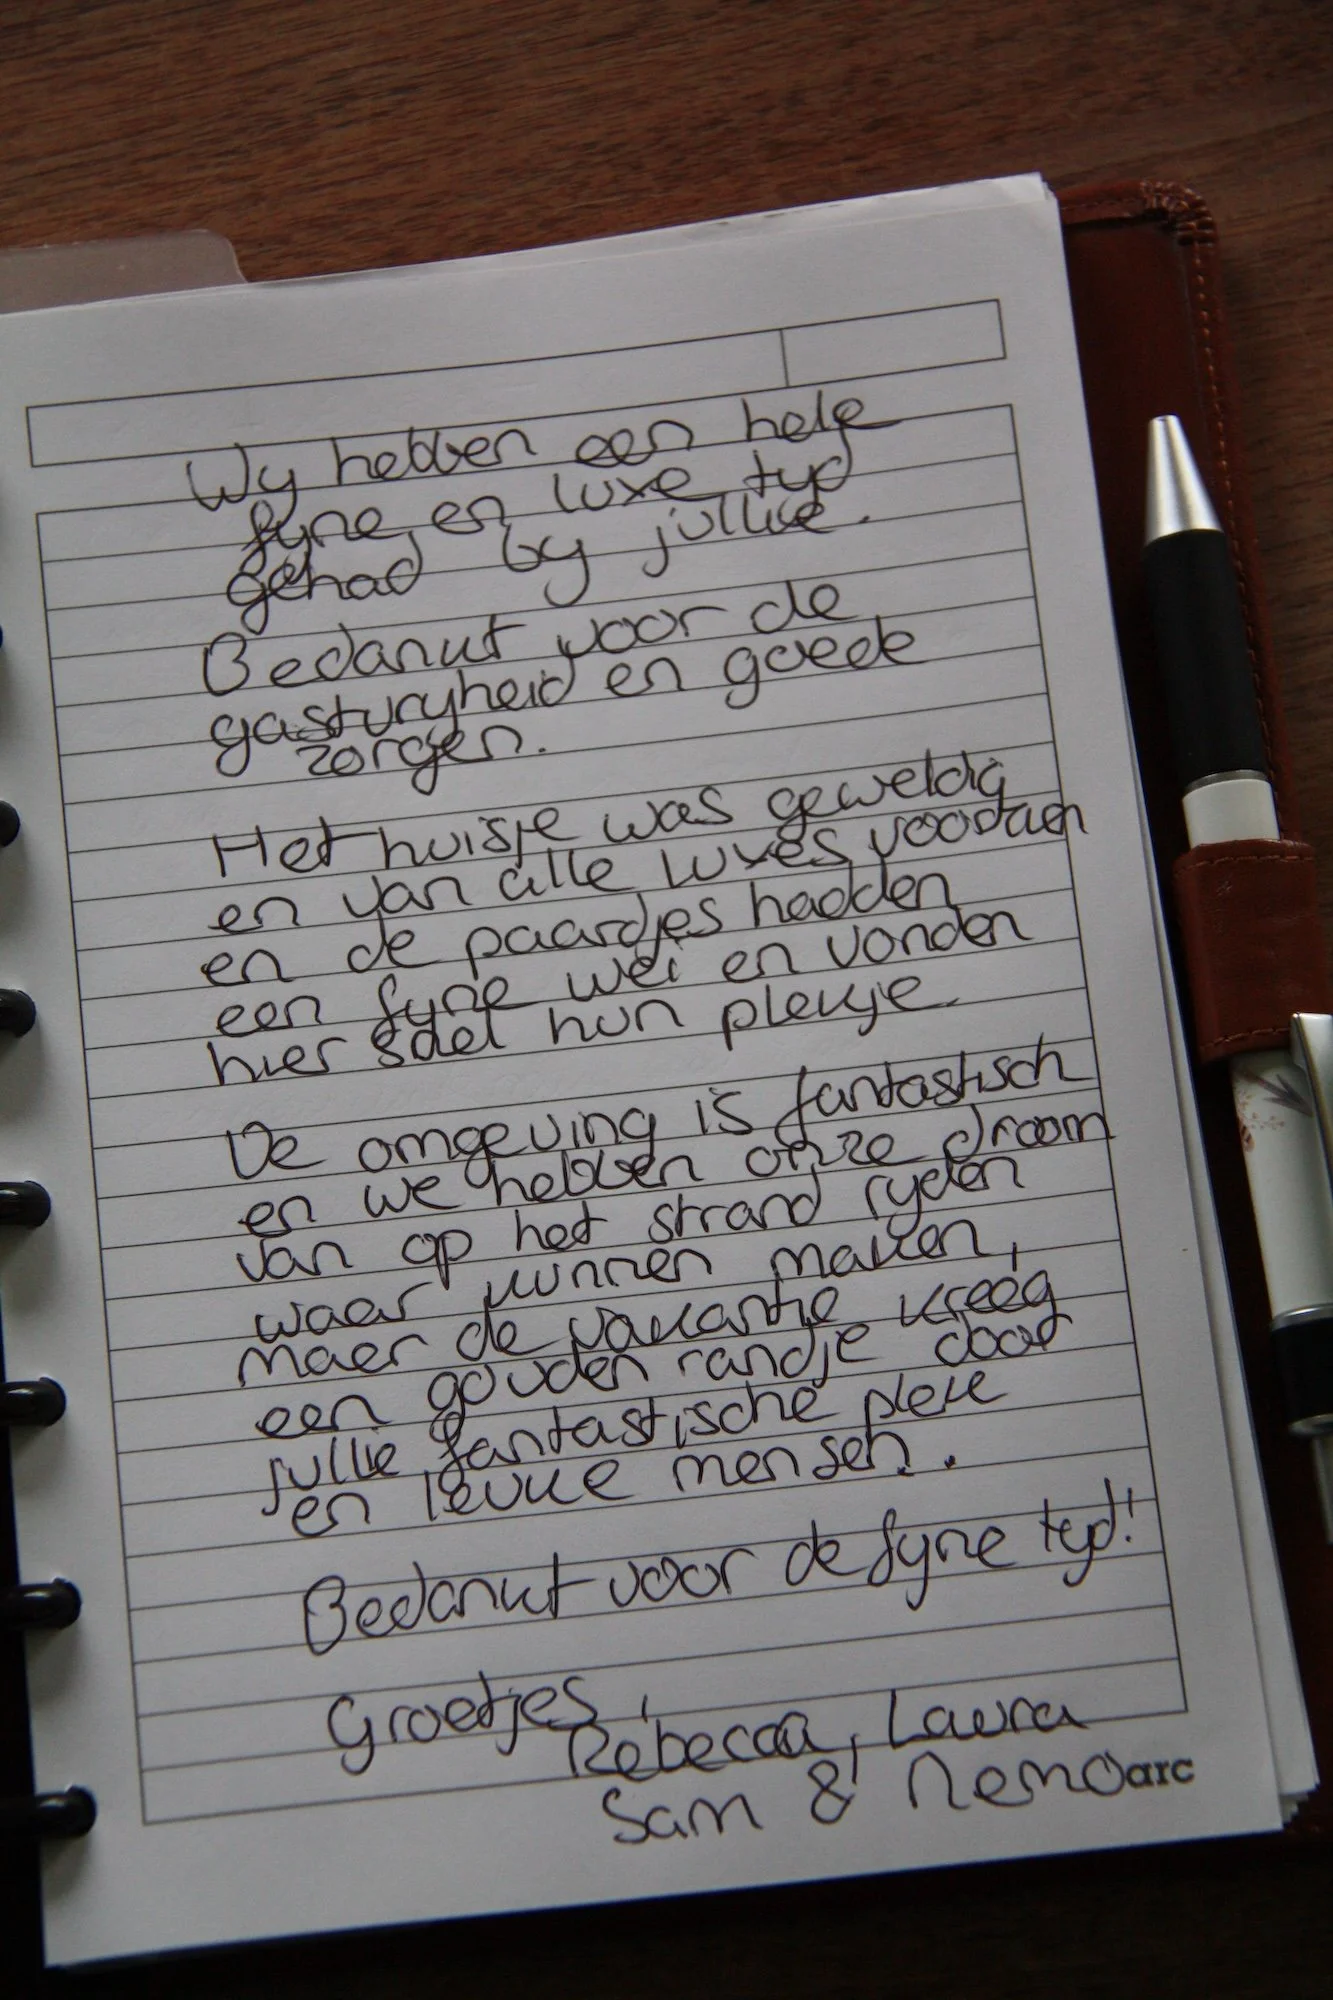 Wij hebben een hele
fijne en luxe tijd
gehad bij jullie.
Bedankt voor de
gastvrijheid en goede
zorgen.
Het huisje was geweldig
en van alle luxes voorzien
en de paardjes hadden
een fijne wei en vonden
hier snel hun plekje.
De omgeving is fantastisch
en we hebben onze droom
van op het strand rijden
waar kunnen maken,
maar de vakantie kreeg
een gouden randje door
jullie fantastische plek
en leuke mensen.
Bedankt voor de fijne tijd!
Groetjes,
Rebecca, Laura
Sam & Nemo
arc